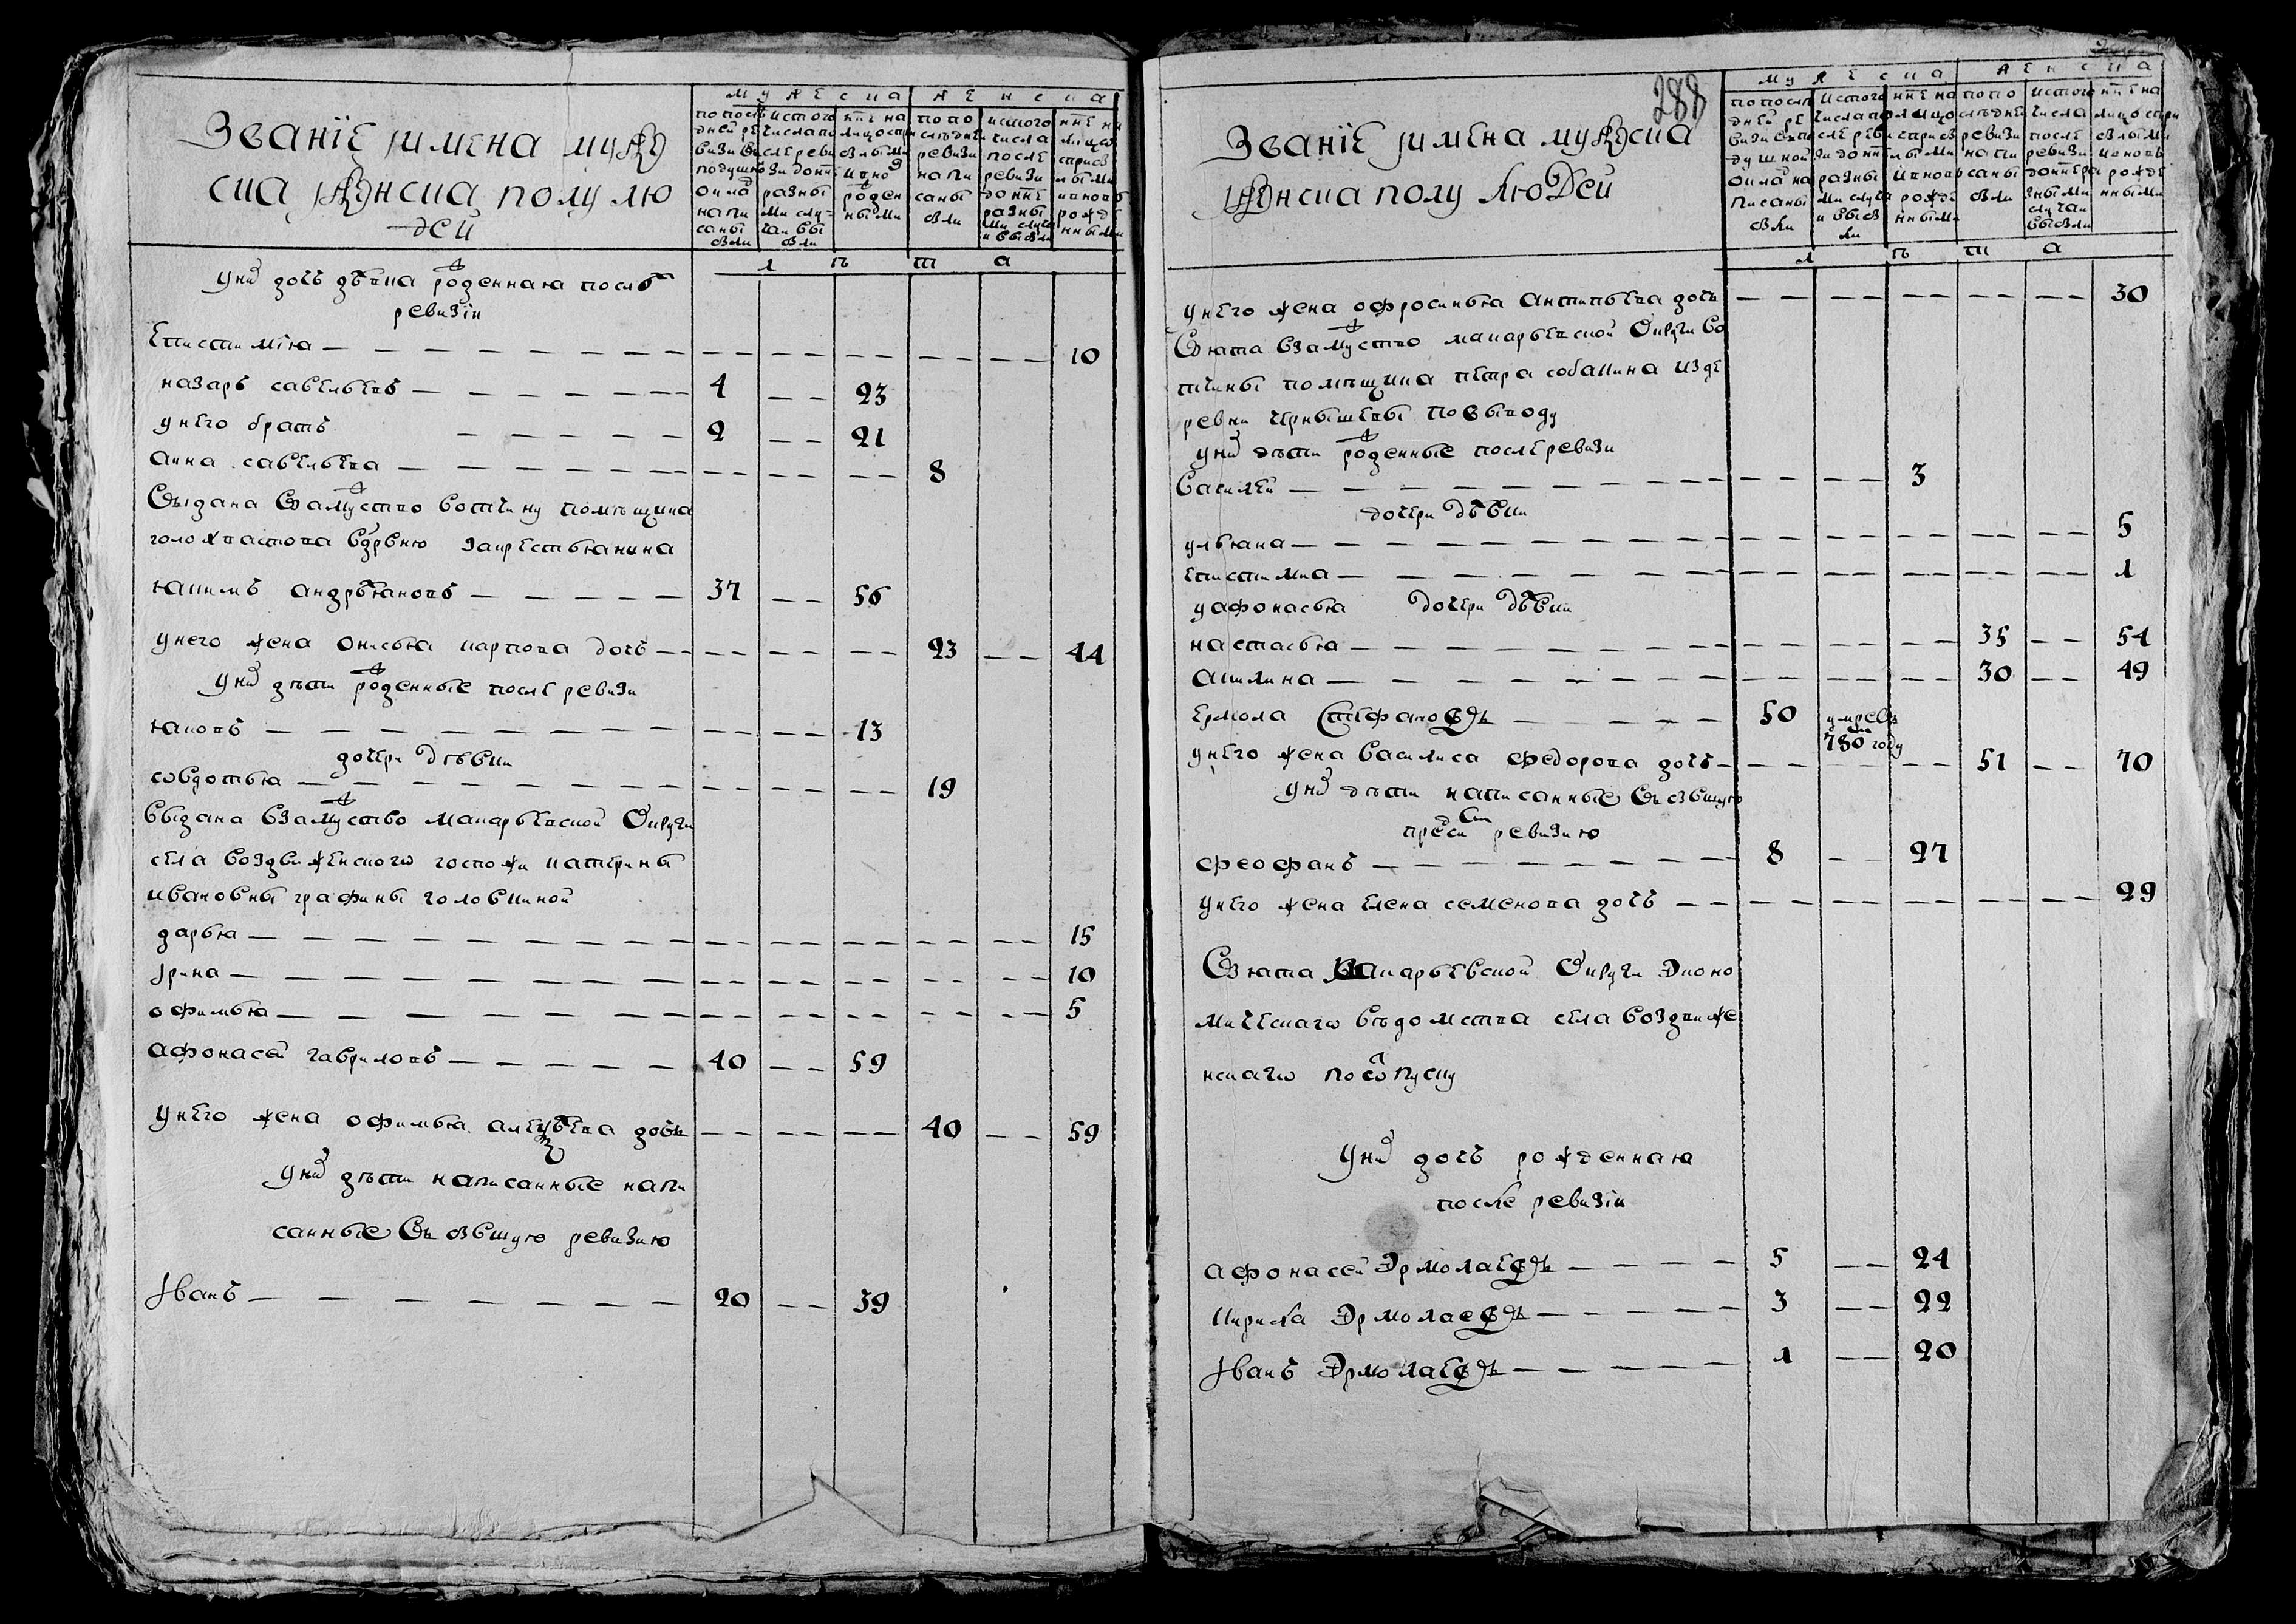 званїе имена муже
ска женска полу лю
дей
мужеска женска
по последней ревизи в подушной оклад написаны были
ис того числа после ревизи до нне разными случаи выбыли
нне на лицо с прибылыми и вновь рожденными
по последней ревизи написаны были
ис того числа после ревизи до нне разными случаи выбыли
нне на лицо с прибылыми и вновь рожденными
лѣта
у них дочь дѣвка рожденная послѣ
ревизїи
епистимїя 10
назаръ савельевъ 4 23
у него братъ 2 21
анна савельева 8
выдана взамужство вотчину помѣщика
голохвастова вдревню за крестьянина
якимъ андрѣяновъ 37 56
у него жена онисья карпова дочь 23 44
у них дѣти рожденные после ревизи
яковъ 13
дочери дѣвки
овдотья 19
выдана взамужство макарьевской округи
села воздвиженского госпожи катерины
ивановны графины головкиной
дарья 15
ирина 10
офимья 5
афонасей гавриловъ 40 59
у него жена офимья алеѯѣева дочь 40 59
у них дѣти написанные напи
санные въ бывшую ревизию
иванъ 20 39
288
званїе имена мужеска
женска полу людей
мужеска женска
по последней ревизи в подушной оклад написаны были
ис того числа после ревизи до нне разными случаи выбыли
нне на лицо с прибылыми и вновь рожденными
по последней ревизи написаны были
ис того числа после ревизи до нне разными случаи выбыли
нне на лицо с прибылыми и вновь рожденными
лѣта
у него жена офросинья антипьева дочь 30
взята взамужство макарьевской округи во
тчины помѣщика петра собакина изде
ревни чернышевы по выводу
у них дѣти рожденные после ревизи
василей 3
дочери дѣвки
ульяна 5
епистимиа 1
у афонасья дочери дѣвки
настасья 35 54
акилина 30 49
ермола стефановъ 50 умре въ
780м году
у него жена василиса федорова дочь 51 70
у них дѣти написанные въ бывшую
пред сим ревизию
феофанъ 8 27
у него жена елена семенова дочь 29
взята макарьевской округи эконо
мическаго вѣдомства села воздвиже
нскаго по отпуску
у них дочь рожденная
после ревизїи
афонасей эрмолаевъ 5 24
кирила эрмолаевъ 3 22
иванъ эрмолаевъ 1 20